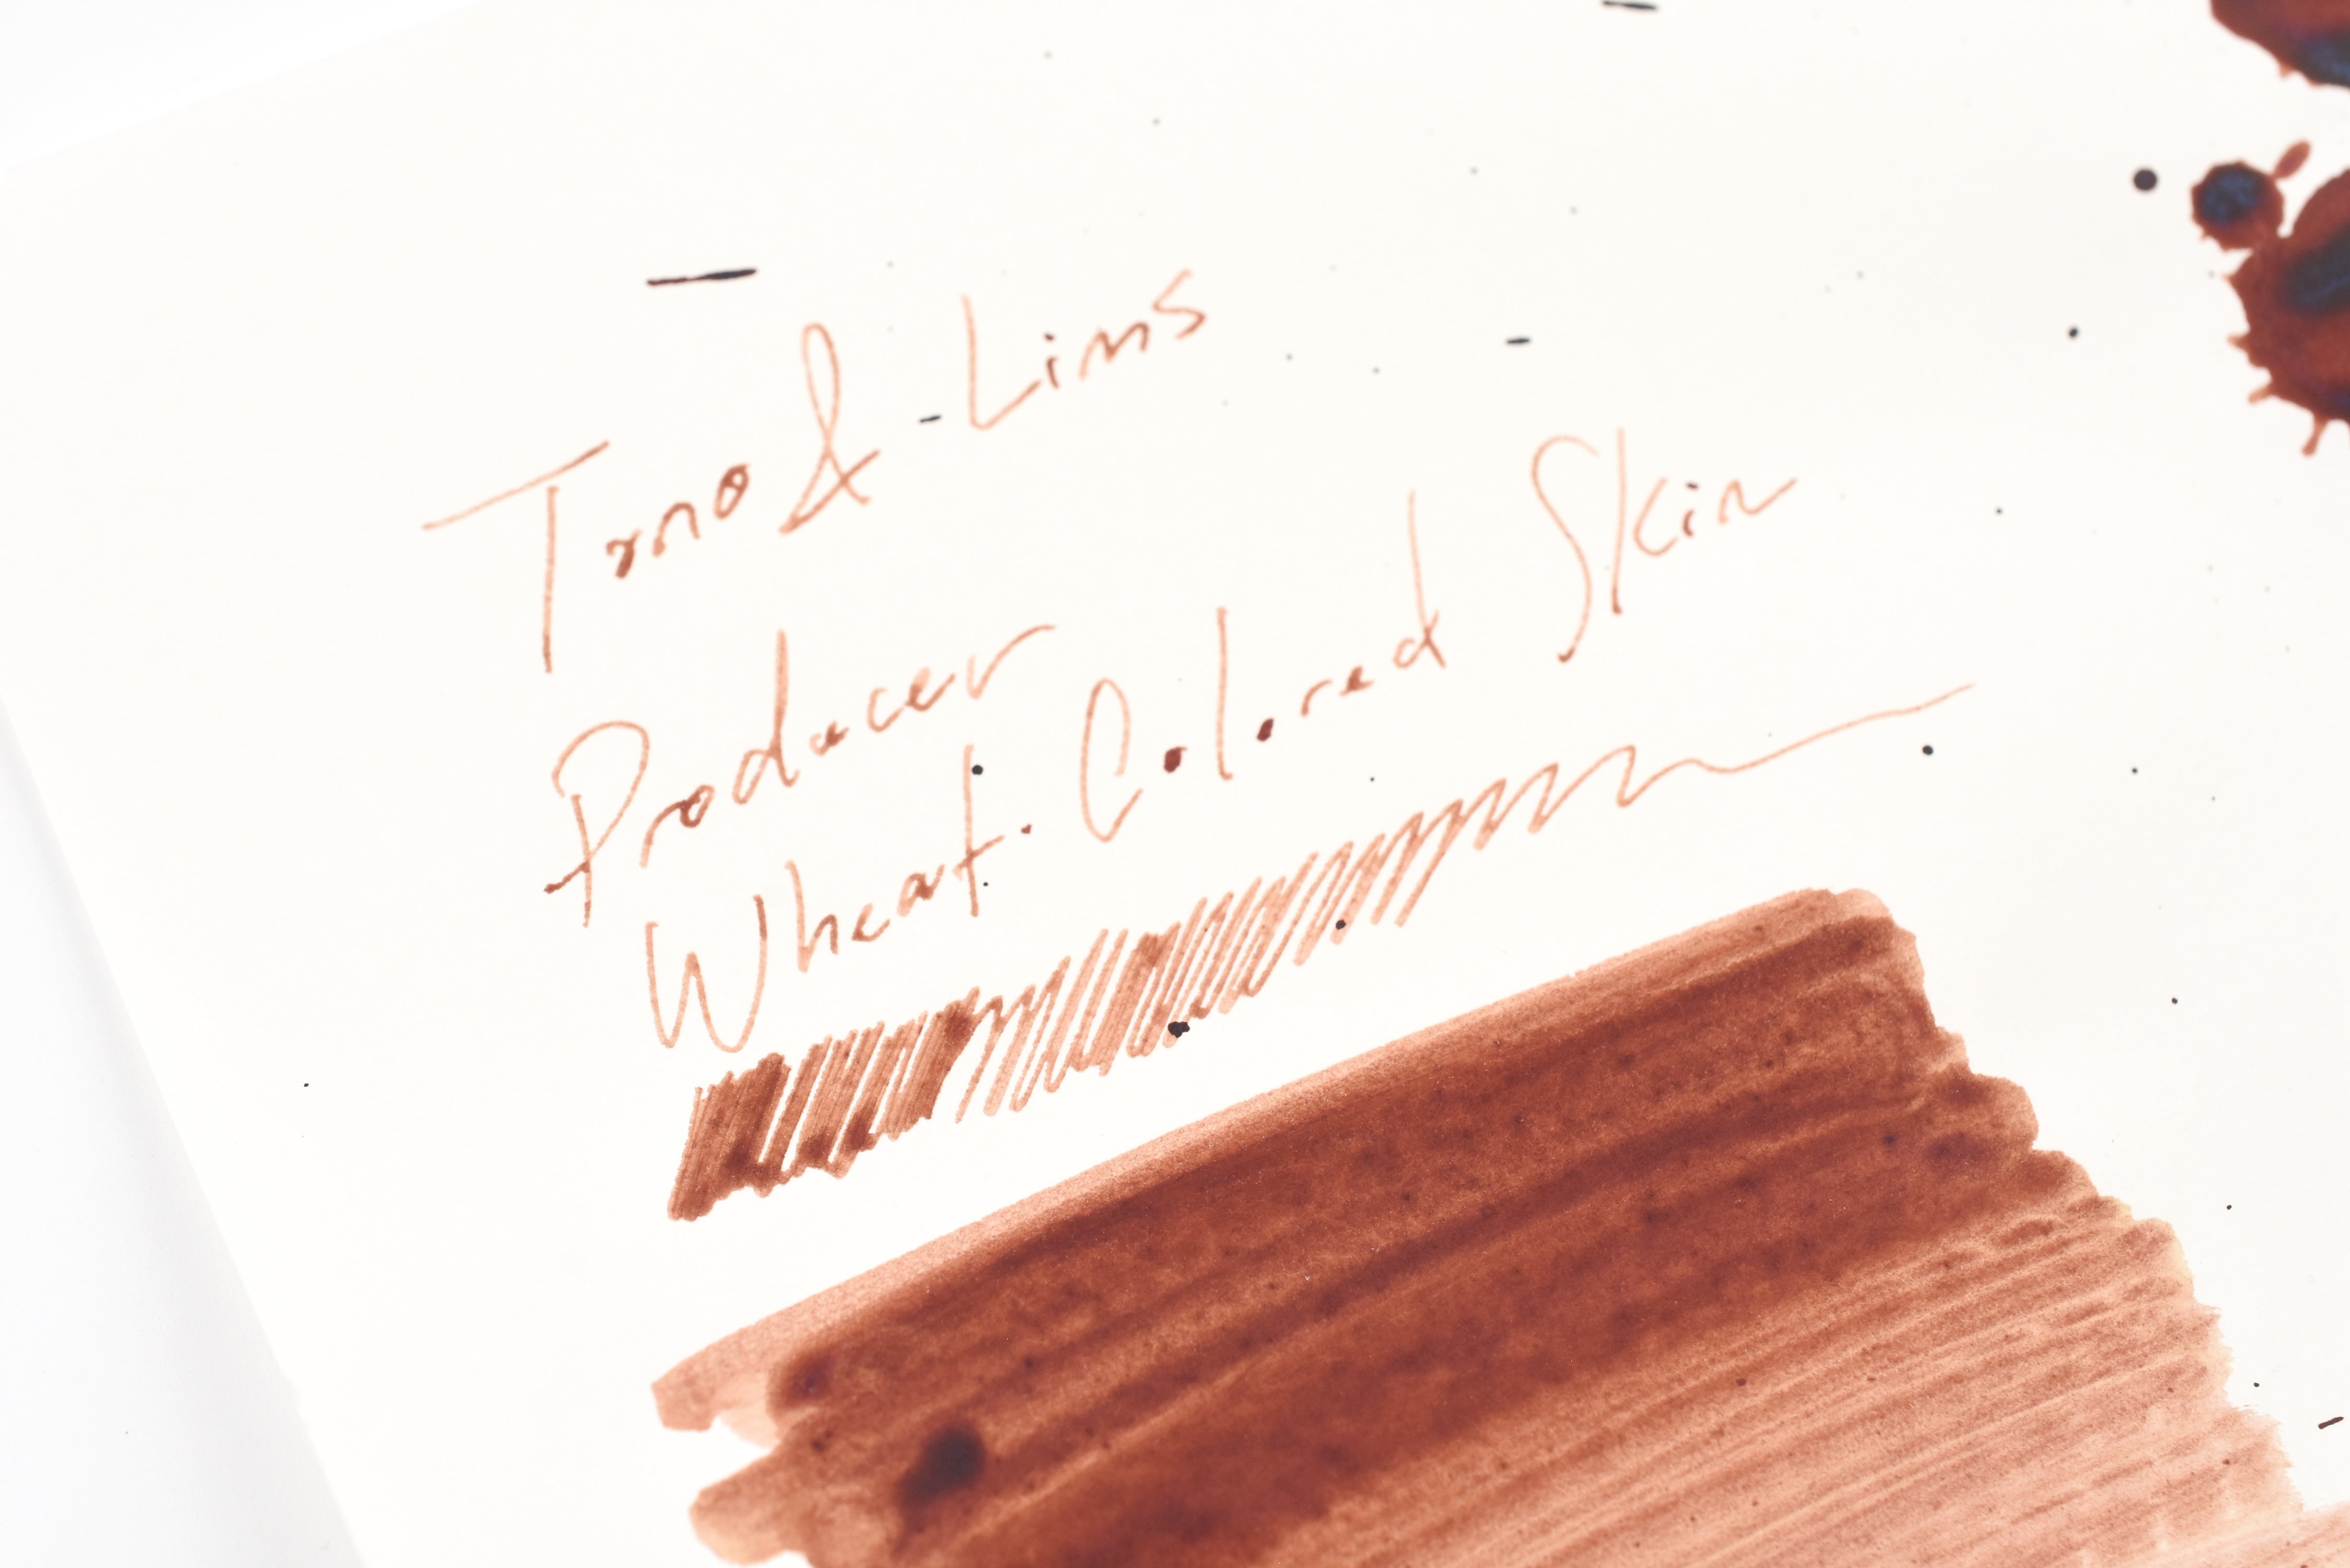 Tono & Lims
Producer
Wheat-Colored Skin